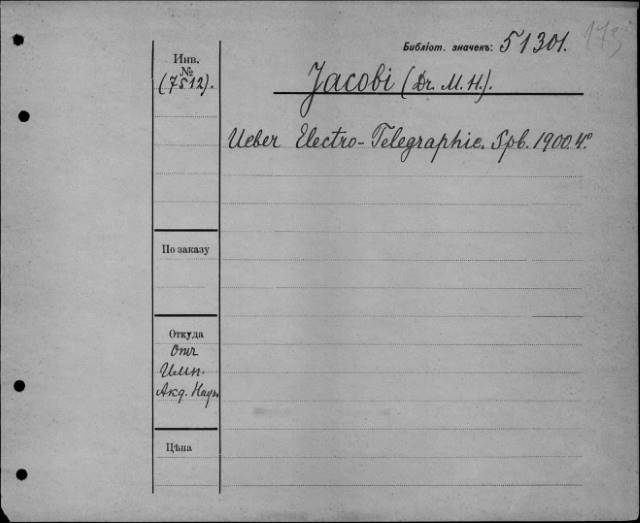 173
Библіот. значекъ: 51301.
Инв.
№
(7512).
Jacobi (Dr. M. H.).
Ueber Electro-Telegraphie. Spb. 1900. 4°
По заказу
Откуда
Отъ
Имп.
Акд. Наукъ
Цѣна